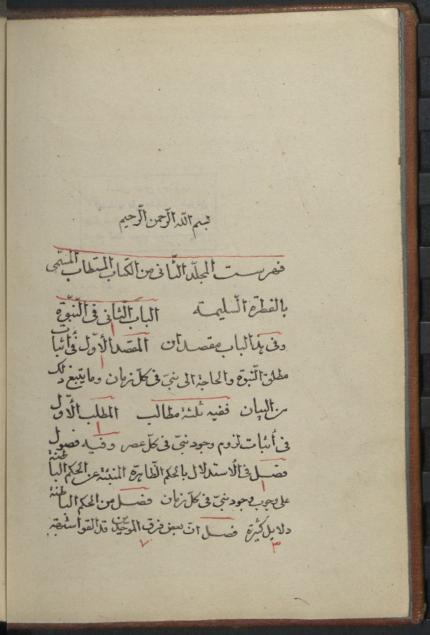 بسم الله الرحمن الرحیم
فهرست المجلد الثانی من الکتاب المستطاب المسمی
بالفطرة السلیمة الباب الثانی فی النبوة
وفی هذا الباب مقصدان المقصد الاول فی اثبات
مطلق النبوة والحاجة الی نبی فی کل زمان وما یتبع ذلک
من البیان ففیه ثلثة مطالب المطلب الاول
۱
فی اثبات لزوم وجود نبی فی کل عصر وفیه فصول
فصل فی الاستدلال بالحکم الظاهرة المنبئة عن الحکم الباطنة
۱
علی وجوب وجود نبی فی کل زمان فصل من الحکم الباطنة
دلایل کثیرة فصل ان بعض فرق الموحدین قد القوا شبهة
۳ ۷